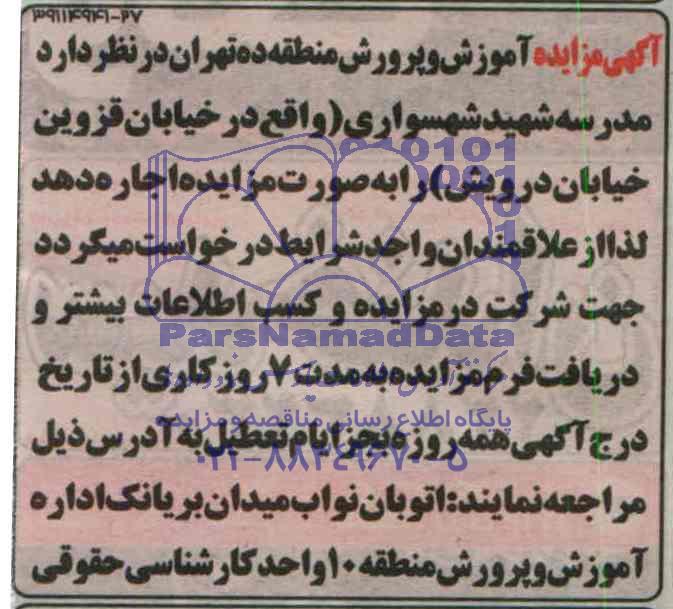 ۳۹۱۱۴۹۴۱-۲۷
آگهی مزایده آموزش و پرورش منطقه ده تهران در نظر دارد
مدرسه شهید شهسواری (واقع در خیابان قزوین
خیابان درویش) را به صورت مزایده اجاره دهد
لذا از علاقمندان واجد شرایط درخواست میگردد
جهت شرکت در مزایده و کسب اطلاعات بیشتر و
ParsNamadData
دریافت فرم مزایده به مدت ۷ روز کاری از تاریخ
پایگاه اطلاع رسانی مناقصه و مزایده
درج آگهی همه روزه بجز ایام تعطیل به آدرس ذیل
۰۲۱-۸۸۳۴۹۶۷۰-۵
مراجعه نمایند: اتوبان نواب میدان بریانک اداره
آموزش و پرورش منطقه ۱۰ واحد کارشناسی حقوقی